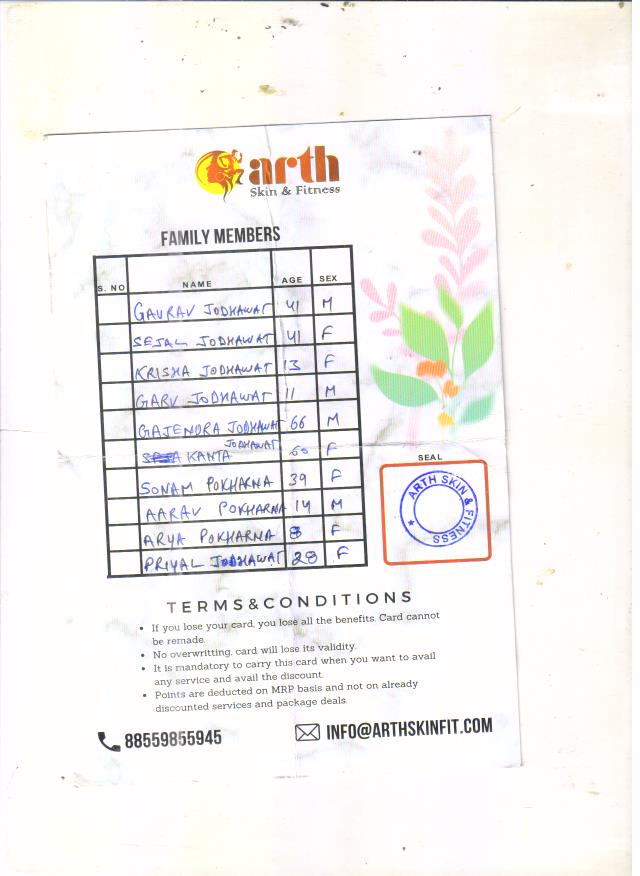 arth
Skin & Fitness
FAMILY MEMBERS
S. NO NAME AGE SEX
GAURAV JODHAWAT 41 M
SEJAL JODHAWAT 41 F
KRISHA JODHAWAT 13 F
GARV JODHAWAT 11 M
GAJENDRA JODHAWAT 66 M
JODHAWAT
KANTA 60 F
SONAM POKHARNA 39 F
AARAV POKHARNA 14 M
ARYA POKHARNA 8 F
PRIYAL JODHAWAT 28 F
SEAL
ARTH SKIN & FITNESS
TERMS&CONDITIONS
• If you lose your card, you lose all the benefits. Card cannot
be remade.
• No overwritting, card will lose its validity.
• It is mandatory to carry this card when you want to avail
any service and avail the discount.
• Points are deducted on MRP basis and not on already
discounted services and package deals.
88559855945
INFO@ARTHSKINFIT.COM